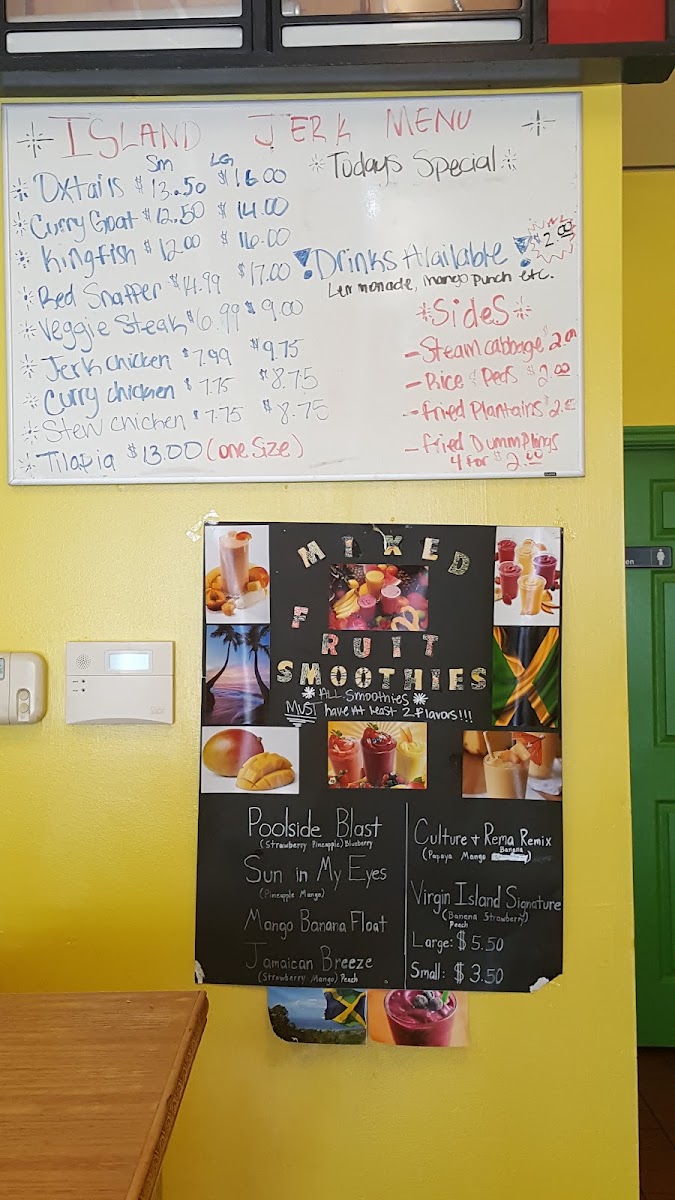 ISLAND JERK MENU
Sm LG
Oxtails $13.50 $16.00
Curry Goat $12.50 $14.00
Kingfish $12.00 $16.00
Red Snapper $14.99 $17.00
Veggie Steak $6.99 $9.00
Jerk chicken $7.99 $9.75
Curry chicken $7.75 $8.75
Stew chicken $7.75 $8.75
Tilapia $13.00 (one Size)
Todays Special
Drinks Available $2.00
Lemmonade, mango punch etc.
Sides
- Steam cabbage $2.00
- Rice & Peas $2.00
- Fried Plantains $2.00
- Fried Dummplings
4 for $2.00
MIXED
FRUIT
SMOOTHIES
*ALL Smoothies*
MUST have At least 2 flavors!!!
Poolside Blast
(Strawberry Pineapple) Blueberry
Sun in My Eyes
(Pineapple Mango)
Mango Banana Float
Jamaican Breeze
(Strawberry Mango) Peach
Culture + Rema Remix
(Papaya Mango Banana)
Virgin Island Signature
(Banana Strawberry)
Peach
Large: $5.50
Small: $3.50